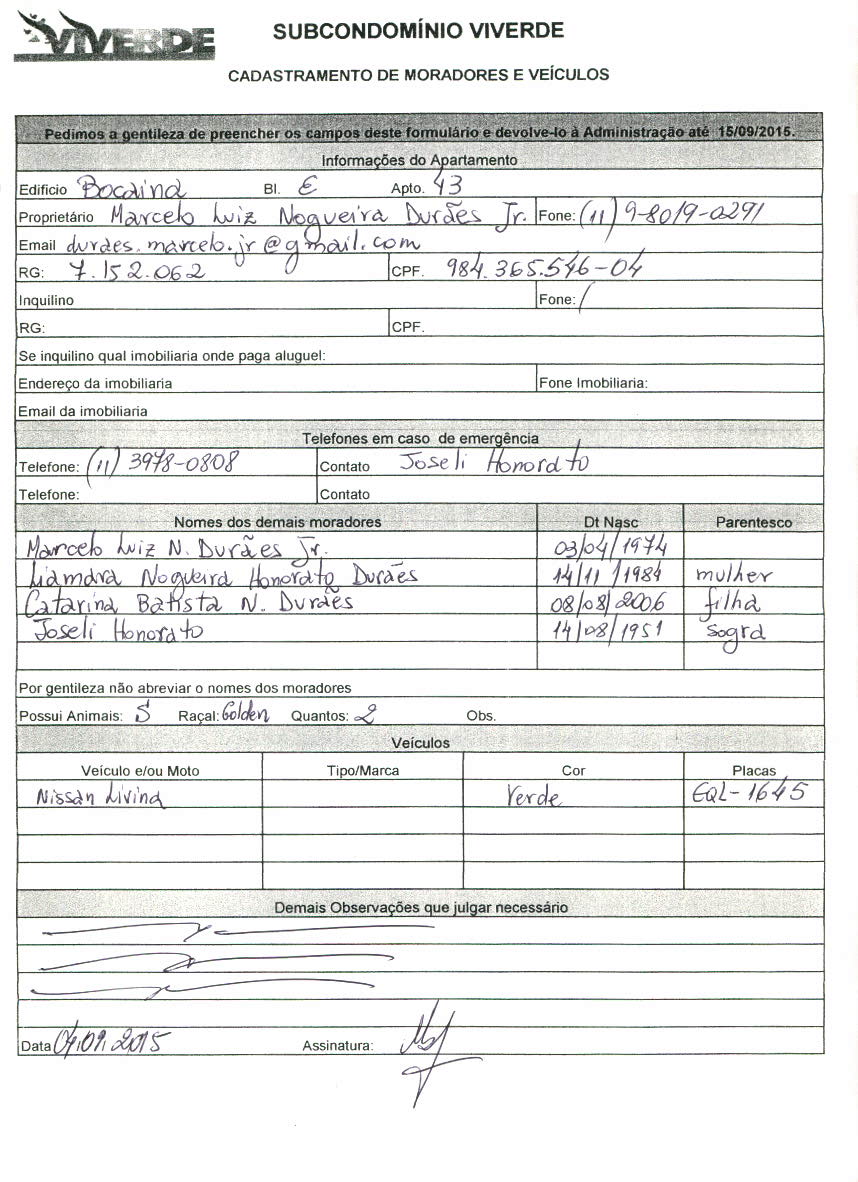 VIVERDE
SUBCONDOMÍNIO VIVERDE
CADASTRAMENTO DE MORADORES E VEÍCULOS
Pedimos a gentileza de preencher os campos deste formulário e devolve-lo à Administração até 15/09/2015.
Informações do Apartamento
Edificio Bocaina Bl. E Apto. 43
Proprietário Marcelo Luiz Nogueira Durães Jr. Fone: (11) 9-8019-0291
Email duraes.marcelo.jr@gmail.com
RG: 7.152.062 CPF. 984.365.546-04
Inquilino Fone: (
RG: CPF.
Se inquilino qual imobiliaria onde paga aluguel:
Endereço da imobiliaria Fone Imobiliaria:
Email da imobiliaria
Telefones em caso de emergência
Telefone: (11) 3978-0808 Contato Joseli Honorato
Telefone: Contato
Nomes dos demais moradores Dt Nasc Parentesco
Marcelo Luiz N. Durães Jr. 03/04/1974
Liamara Nogueira Honorato Durães 14/11/1984 mulher
Catarina Batista N. Durães 08/08/2006 filha
Joseli Honorato 14/08/1951 sogra
Por gentileza não abreviar o nomes dos moradores
Possui Animais: S Raçal: Golden Quantos: 2 Obs.
Veículos
Veículo e/ou Moto Tipo/Marca Cor Placas
Nissan Livina Verde EQL-1645
Demais Observações que julgar necessário
Data 04.09.2015 Assinatura: